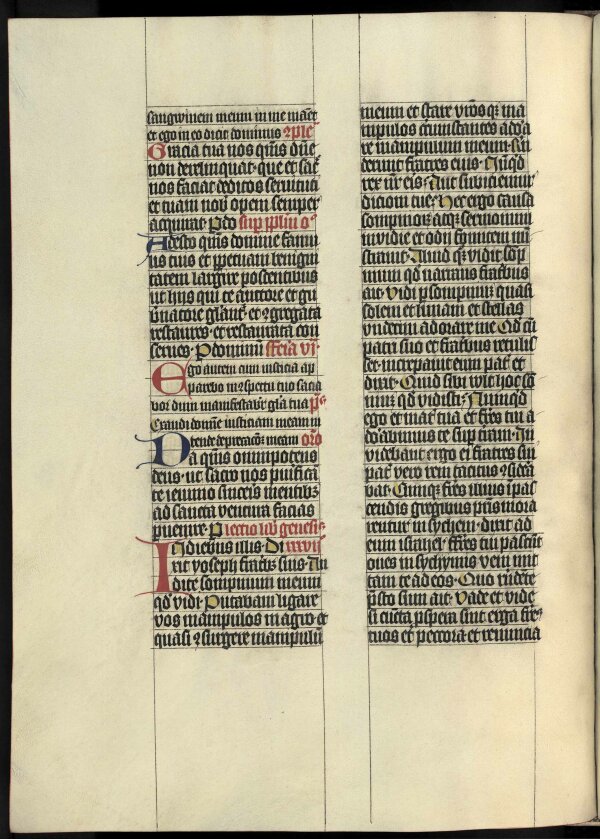 sangwinem meum in me manet
et ego in eo dicit dominus ꝯple
Gracia tua nos qͥs dn̄e
non derelinquat · que et sac̄
nos faciat deditos servituti
et tuam nob opem semper
acquirat · P do sup pplm oͦ
Adesto qͥs domine famu
lis tuis et ppetuam benigni
tatem largire poscentibus
ut hijs qui te auctore et gu
bnatore gl̄ant᷑ et ꝯgregata
restaures · et restaurata con
serves · P dominū feria vi
Ego autem cum iusticia ap
parebo in ꝯspectu tuo sacia
bor dum manifestabit᷑ gl̄a tua pͥˢ
Exaudi domīe iusticiam meam in
tende deprecacōꝫ meam or̄o
Da qͥs omnipotens
deus · ut sacro nos purificā
te ieiunio sinceris mentibꝫ
ad sancta ventura facias
pvenire · P lectio libͥ genesis
In diebus illis · Di xxxvij
xit yoseph fratribꝫ suis · Au
dite sompnium meum
qd vidi · Putabam ligare
vos manipulos in agro et
quasi ꝯsurgere manipulū
meum et stare vr̄osqꝫ ma
nipulos circumstantes adora
re manipulum meum · Rn̄
derunt fratres eius · Nūqd
rex nr̄ eis · Aut subiciemur
dicioni tue · Hec ergo causa
sompnioꝝ atqꝫ sermonum
invidie et odii fomitem mi
nistravit · Aliud qꝫ vidit sōp
nium qd narrans fratribus
ait · Vidi p sompnium quasi
solem et lunam et stellas
undecim adorare me · Qd cū
patri suo et fratribus retulis
set increpavit eum pat᷑ et
dixit · Quid sibi vult hoc sō
niuꝫ qd vidisti · Nunqd
ego et mat᷑ tua et fr̄es tui a
dorabimus te sup terram · In
videbant ergo ei fratres sui
pat᷑ vero rem tacitus ꝯside
bat · Cumqꝫ fr̄es illius i pas
cendis gregibus pr̄is mora
rentur in sychem · dixit ad
eum israhel · Fr̄es tui pascunt
oves in sychymis veni mit
tam te ad eos · Quo rn̄dente
p̄sto sum ait · Vade et vide
si cuncta pspera sint erga fr̄es
tuos et pecora et renuncia